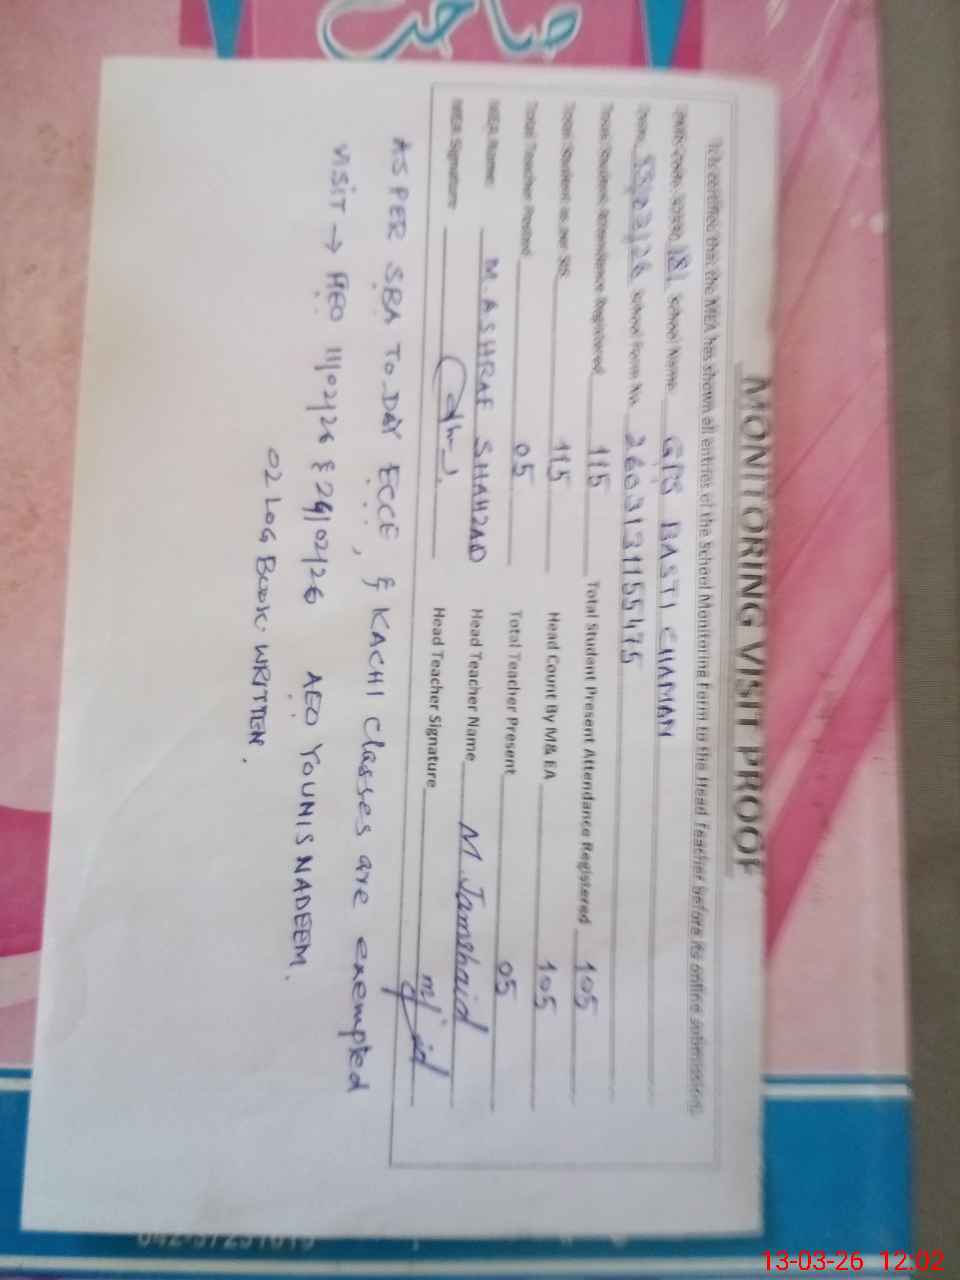 صاحب
MONITORING VISIT PROOF
It is certified that the MEA has shown all entries of the School Monitoring Form to the Head Teacher before its online submission.
181 School Name GPS BASTI CHAMAN
/03/26 School Form No. 2603131155475
Total Student Attendance Registered 115 Total Student Present Attendance Registered 105
Total Student as per SIS 115 Head Count By M& EA 105
Total Teacher Posted 05 Total Teacher Present 05
MEA Name: M. ASHRAF SHAHZAD Head Teacher Name M. Jamshaid
MEA Signature Head Teacher Signature
AS PER SBA TO_DAY ECCE, & KACHI Classes are exempted
VISIT → AEO 11/02/26 & 24/02/26 AEO YOUNIS NADEEM.
02 LOG BOOK WRITTEN.
13-03-26 12:02